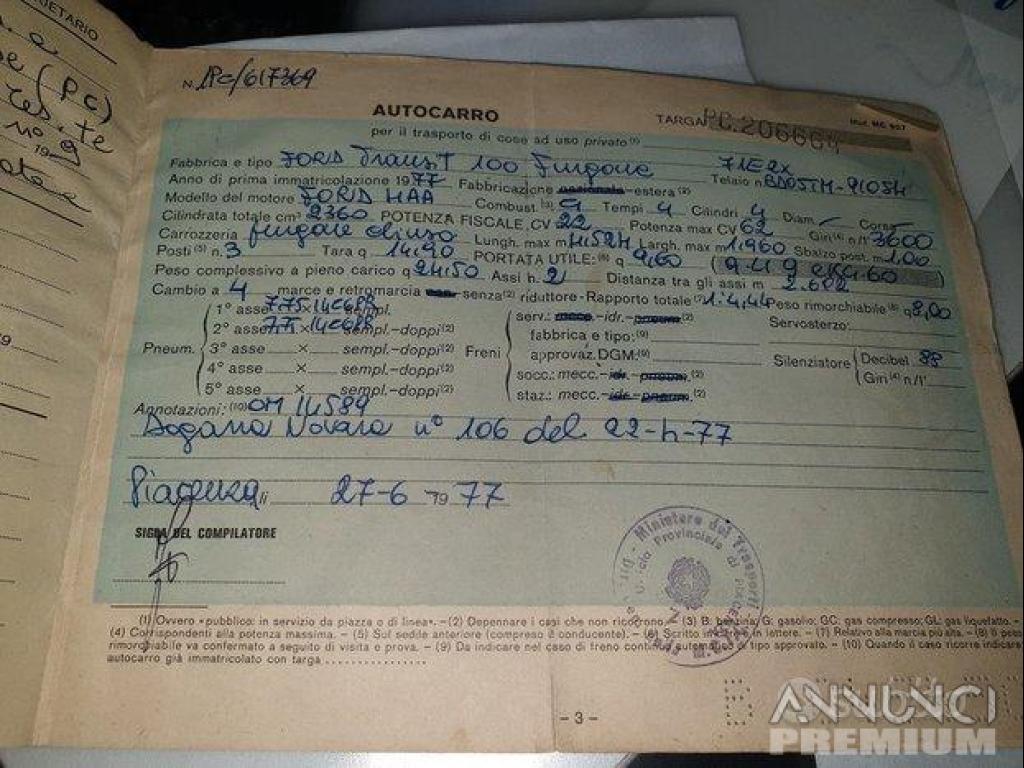 IETARIO
(PC)
res.te
n° 9
19
N. PC/617369
AUTOCARRO
TARGA PC.206664
Mod. MC 807
per il trasporto di cose ad uso privato (1)
Fabbrica e tipo FORD Transit 100 Furgone 71E2X
Anno di prima immatricolazione 1977 Fabbricazione nazionale-estera (2) Telaio n.
Modello del motore FORD HAA Combust. (3) G Tempi 4 Cilindri 4 Diam. Corsa
Cilindrata totale cm³ 2360 POTENZA FISCALE, CV 22 Potenza max CV 62 Giri (4) n/1' 3600
Carrozzeria furgone chiuso Lungh. max m 4.524 Largh. max m 1.960 Sbalzo post. m 1.00
Posti (5) n. 3 Tara q 14.90 PORTATA UTILE: (6) q 9.60
Peso complessivo a pieno carico q 24.50 Assi n. 2 Distanza tra gli assi m 2.682
Cambio a 4 marce e retromarcia con-senza (2) riduttore - Rapporto totale (7) 1:4,44 Peso rimorchiabile (8) q 8,00
Pneum.
1° asse 7.75x14C6PR sempl.
2° asse x14C6PR sempl.-doppi (2)
3° asse × sempl.-doppi (2)
4° asse × sempl.-doppi (2)
5° asse × sempl.-doppi (2)
Freni
serv.: mecc.-idr.-pneum. (2)
fabbrica e tipo: (9)
approvaz. DGM: (9)
socc.: mecc.-idr.-pneum. (2)
staz.: mecc.-idr.-pneum. (2)
Servosterzo:
Silenziatore
Decibel 88
Giri (4) n/1'
Annotazioni: (10) OM 14589
Dogana Novara n° 106 del 22-4-77
Piacenza lì 27-6 1977
SIGLA DEL COMPILATORE
Ministero dei Trasporti
Ufficio Provinciale di PIACENZA
(1) Ovvero «pubblico: in servizio da piazza o di linea». - (2) Depennare i casi che non ricorrono. - (3) B: benzina; G: gasolio; GC: gas compresso; GL: gas liquefatto.
(4) Corrispondenti alla potenza massima. - (5) Sul sedile anteriore (compreso il conducente). - (6) Scritto in cifre e in lettere. - (7) Relativo alla marcia più alta. - (8) Il peso
rimorchiabile va confermato a seguito di visita e prova. - (9) Da indicare nel caso di freno continuo automatico di tipo approvato. - (10) Quando il caso ricorre indicare
autocarro già immatricolato con targa
- 3 -
ANNUNCI
PREMIUM